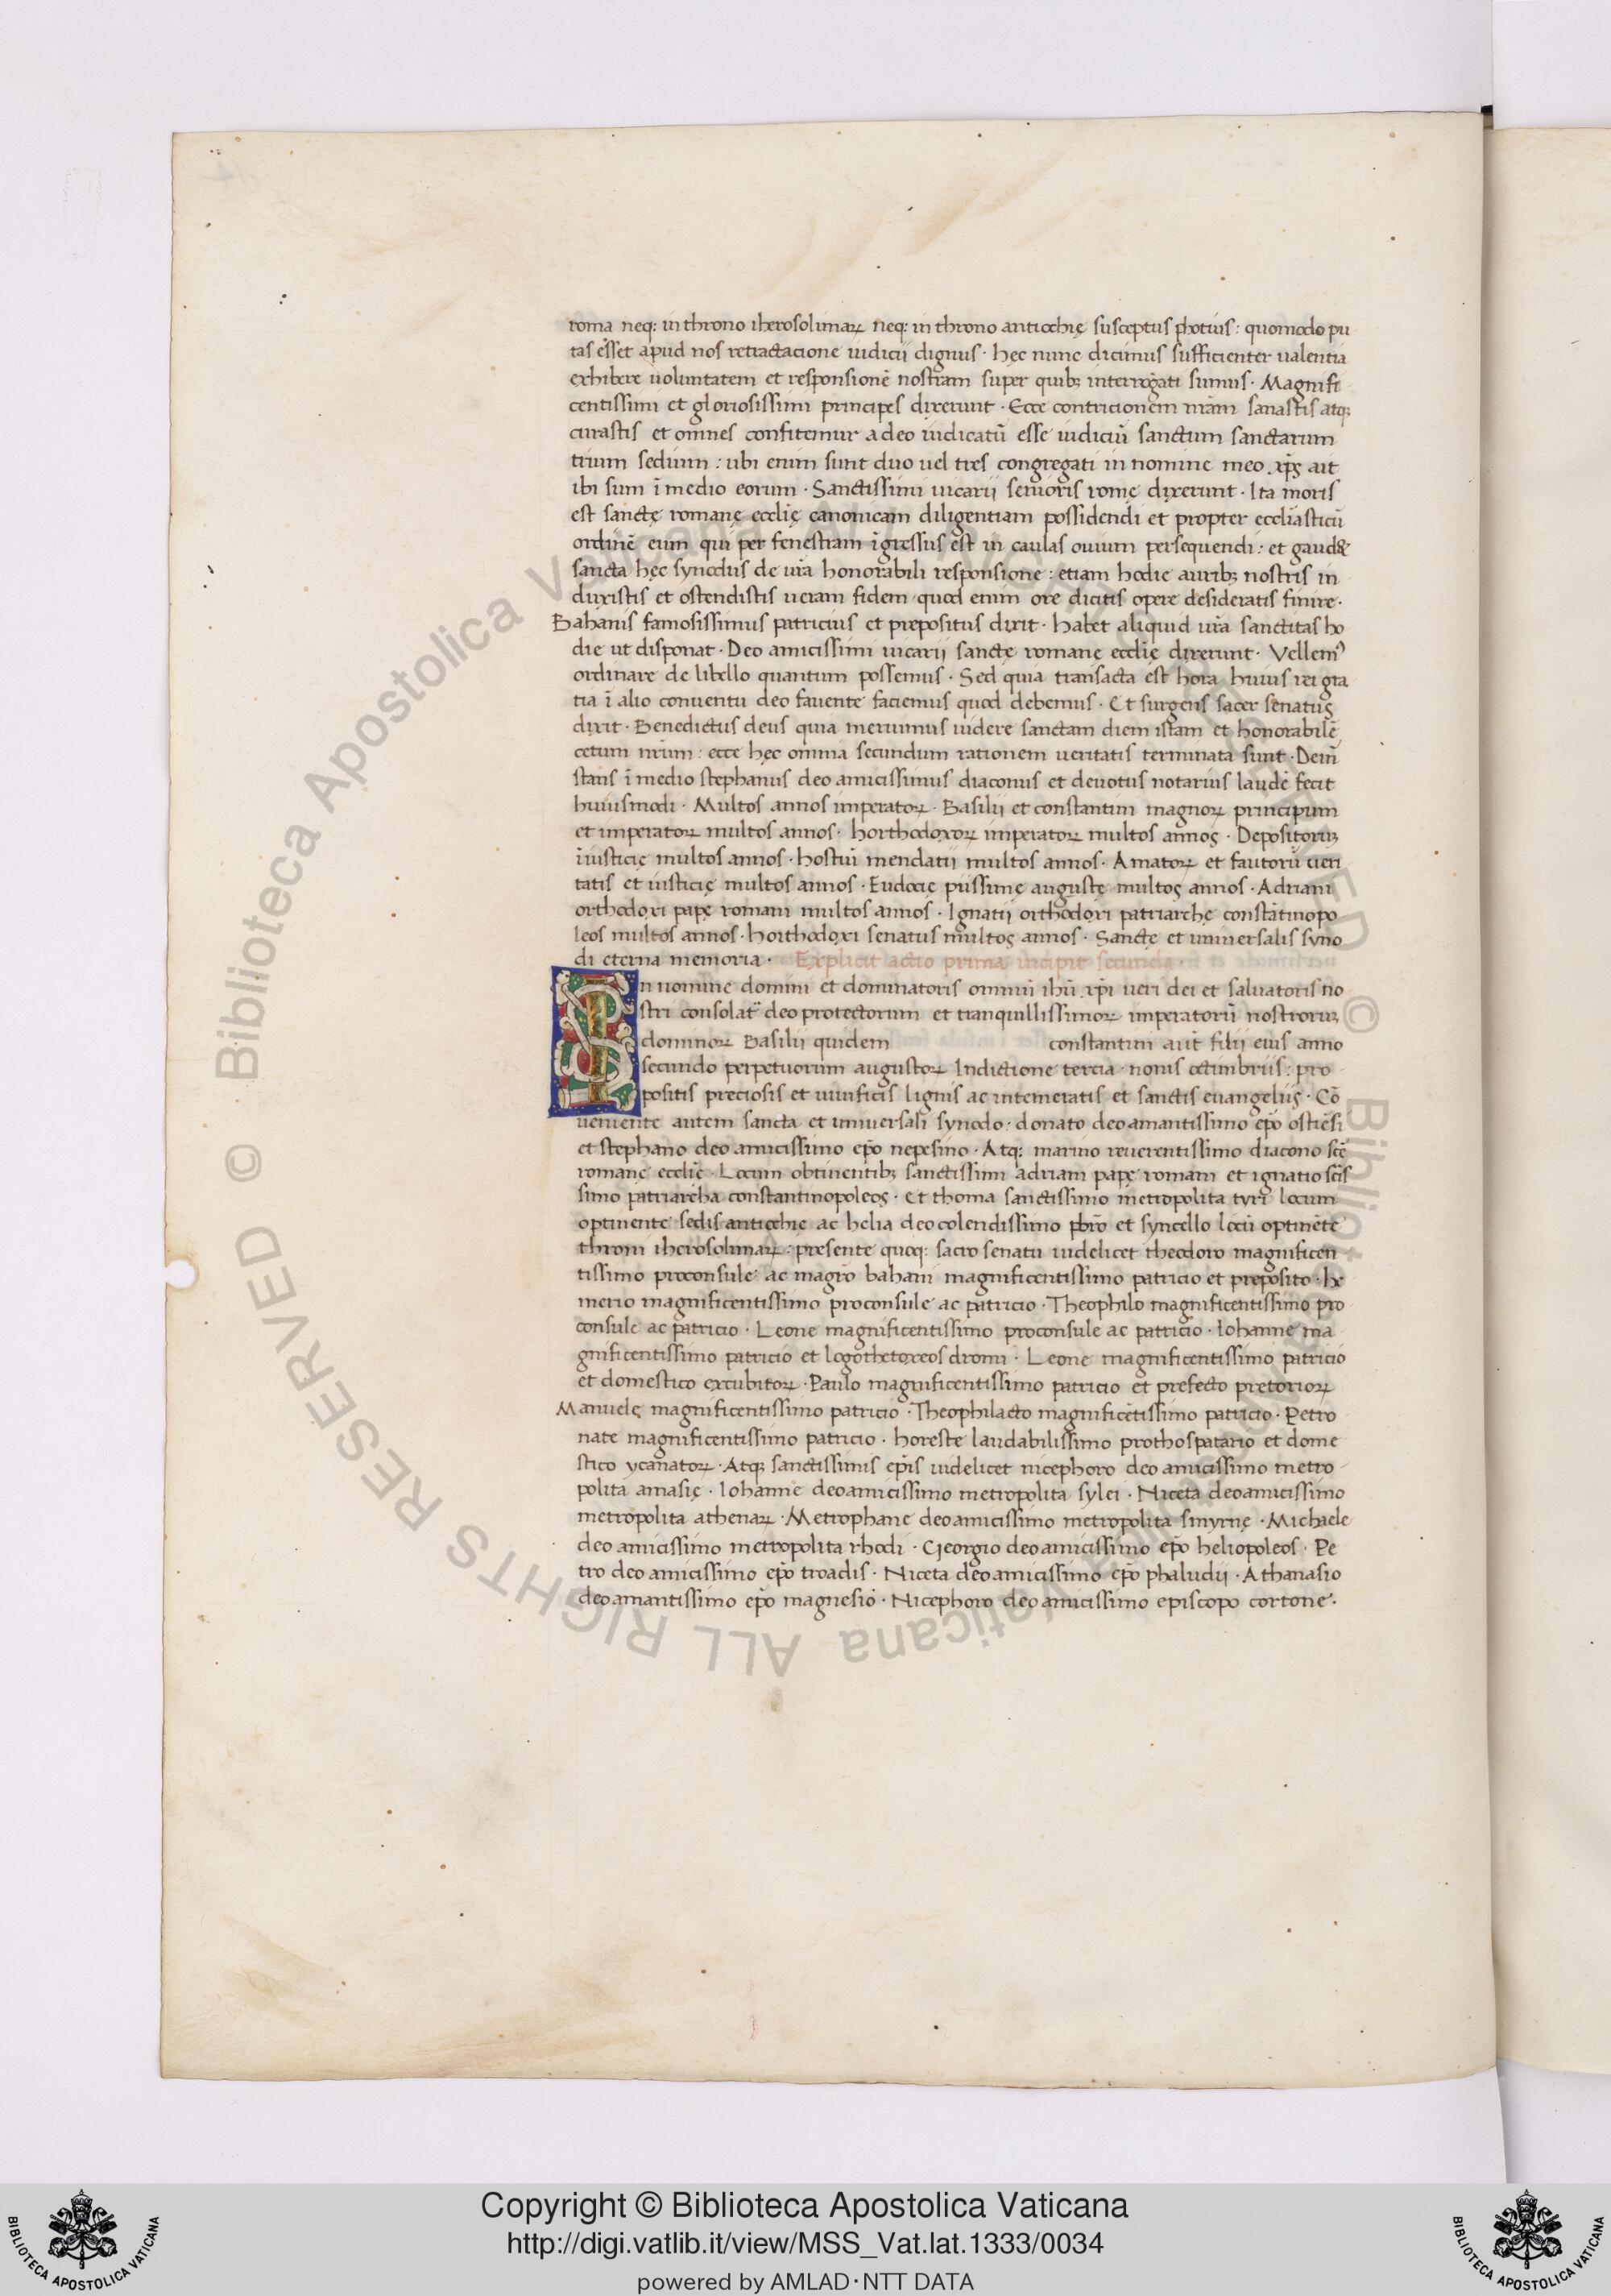 roma neq; in throno iherosolimaꝝ neq; in throno antiochię susceptus photius : quomodo pu
tas esset apud nos retractacione iudicii dignus · hęc nunc dicimus sufficienter ualentia
exhibere uoluntatem et responsionē nostram super quibꝫ interrogati sumus · Magnifi
centissimi et gloriosissimi principes dixerunt · Ecce contricionem nr̄am sanastis atqꝫ
curastis et omnes confitemur a deo iudicatū esse iudiciū sanctum sanctarum
trium sedium : ubi enim sunt duo uel tres congregati in nomine meo xp̄s ait
ibi sum ī medio eorum · Sanctissimi uicarii senioris romę dixerunt · Ita moris
est sanctę romanę eccl̄ię canonicam diligentiam possidendi et propter eccl̄iasticū
ordinē eum qui per fenestram īgressus est in caulas ouium persequendi : et gaud&
sancta hęc synodus de ur̄a honorabili responsione : etiam hodie auribꝫ nostris in
duxistis et ostendistis ueram fidem · quod enim ore dicitis opere desideratis finire ·
Bahanis famosissimus patricius et prepositus dixit · habet aliquid ur̄a sanctitas ho
die ut disponat · Deo amicissimi uicarii sanctę romanę eccl̄ię dixerunt · Vellemꝰ
ordinare de libello quantum possemus · Sed quia transacta est hora huius rei gra
tia ī alio conuentu deo fauente faciemus quod debemus · Et surgens sacer senatus
dixit · Benedictus deus quia meruimus uidere sanctam diem istam et honorabilē
cetum nr̄um : ecce hęc omnia secundum rationem ueritatis terminata sunt · Dein̄
stans ī medio stephanus deo amicissimus diaconus et deuotus notarius laudē fecit
huiusmodi · Multos annos imperatoꝝ · Basilii et constantini magnoꝝ principum
et imperatoꝝ multos annos · horthodoxoꝝ imperatoꝝ multos annos · Depositoruꝫ
iniusticię multos annos · hostiū mendatii multos annos · Amatoꝝ et fautorū ueri
tatis et iusticię multos annos · Eudocię piissimę augustę multos annos · Adriani
orthodoxi papę romani multos annos · Ignatii orthodoxi patriarchę constātinopo
leos multos annos · horthodoxi senatus multos annos · Sanctę et uniuersalis syno
di eterna memoria · Explicit actio prima incipit secunda ·
In nomine domini et dominatoris omniū ihū xp̄i ueri dei et saluatoris no
stri consolat̄ deo protectorum et tranquillissimoꝝ imperatorū nostroruꝫ
dominoꝝ Basilii quidem constantini aut̄ filii eius anno
secundo perpetuorum augustoꝝ Indictione tercia · nonis octimbriis : pro
positis preciosis et uiuificis lignis ac intemeratis et sanctis euangeliis · Cō
ueniente autem sancta et uniuersali synodo · donato deo amantissimo ep̄o ostiēsi
et stephano deo amicissimo ep̄o nepesino · Atq; marino reuerentissimo diacono scē
romanę eccl̄ię · Locum obtinentibꝫ sanctissimi adriani papę romani et ignatio scīs
simo patriarcha constantinopoleos · Et thoma sanctissimo metropolita tyri locum
optinente sedis antiochie ac helia deo colendissimo pb̄ro et syncello locū optinēte
throni iherosolimaꝝ : presente quoq; sacro senatu uidelicet theodoro magnificen
tissimo proconsule ac magr̄o bahani magnificentissimo patricio et preposito · he
merio magnificentissimo proconsule ac patricio · Theophilo magnificentissimo pro
consule ac patricio · Leone magnificentissimo proconsule ac patricio · Iohanne ma
gnificentissimo patricio et logothetoxeos dromi · Leone magnificentissimo patricio
et domestico excubitoꝝ · Paulo magnificentissimo patricio et prefecto pretorioꝝ
Manuele magnificentissimo patricio · Theophilacto magnificētissimo patricio · Petro
nate magnificentissimo patricio · horeste laudabilissimo prothospatario et dome
stico ycanatoꝝ · Atqꝫ sanctissimis ep̄is uidelicet nicephoro deo amicissimo metro
polita amasię · Iohanne deoamicissimo metropolita sylei · Niceta deoamicissimo
metropolita athenaꝝ · Metrophane deoamicissimo metropolita smyrnę · Michaele
deo amicissimo metropolita rhodi · Georgio deo amicissimo ep̄o heliopoleos · Pe
tro deo amicissimo ep̄o troadis · Niceta deo amicissimo ep̄o phaludii · Athanasio
deo amantissimo ep̄o magnesio · Nicephoro deo amicissimo episcopo cortone ·
© Biblioteca Apostolica Vaticana ALL RIGHTS RESERVED
Copyright © Biblioteca Apostolica Vaticana
http://digi.vatlib.it/view/MSS_Vat.lat.1333/0034
powered by AMLAD·NTT DATA
BIBLIOTECA APOSTOLICA VATICANA
BIBLIOTECA APOSTOLICA VATICANA